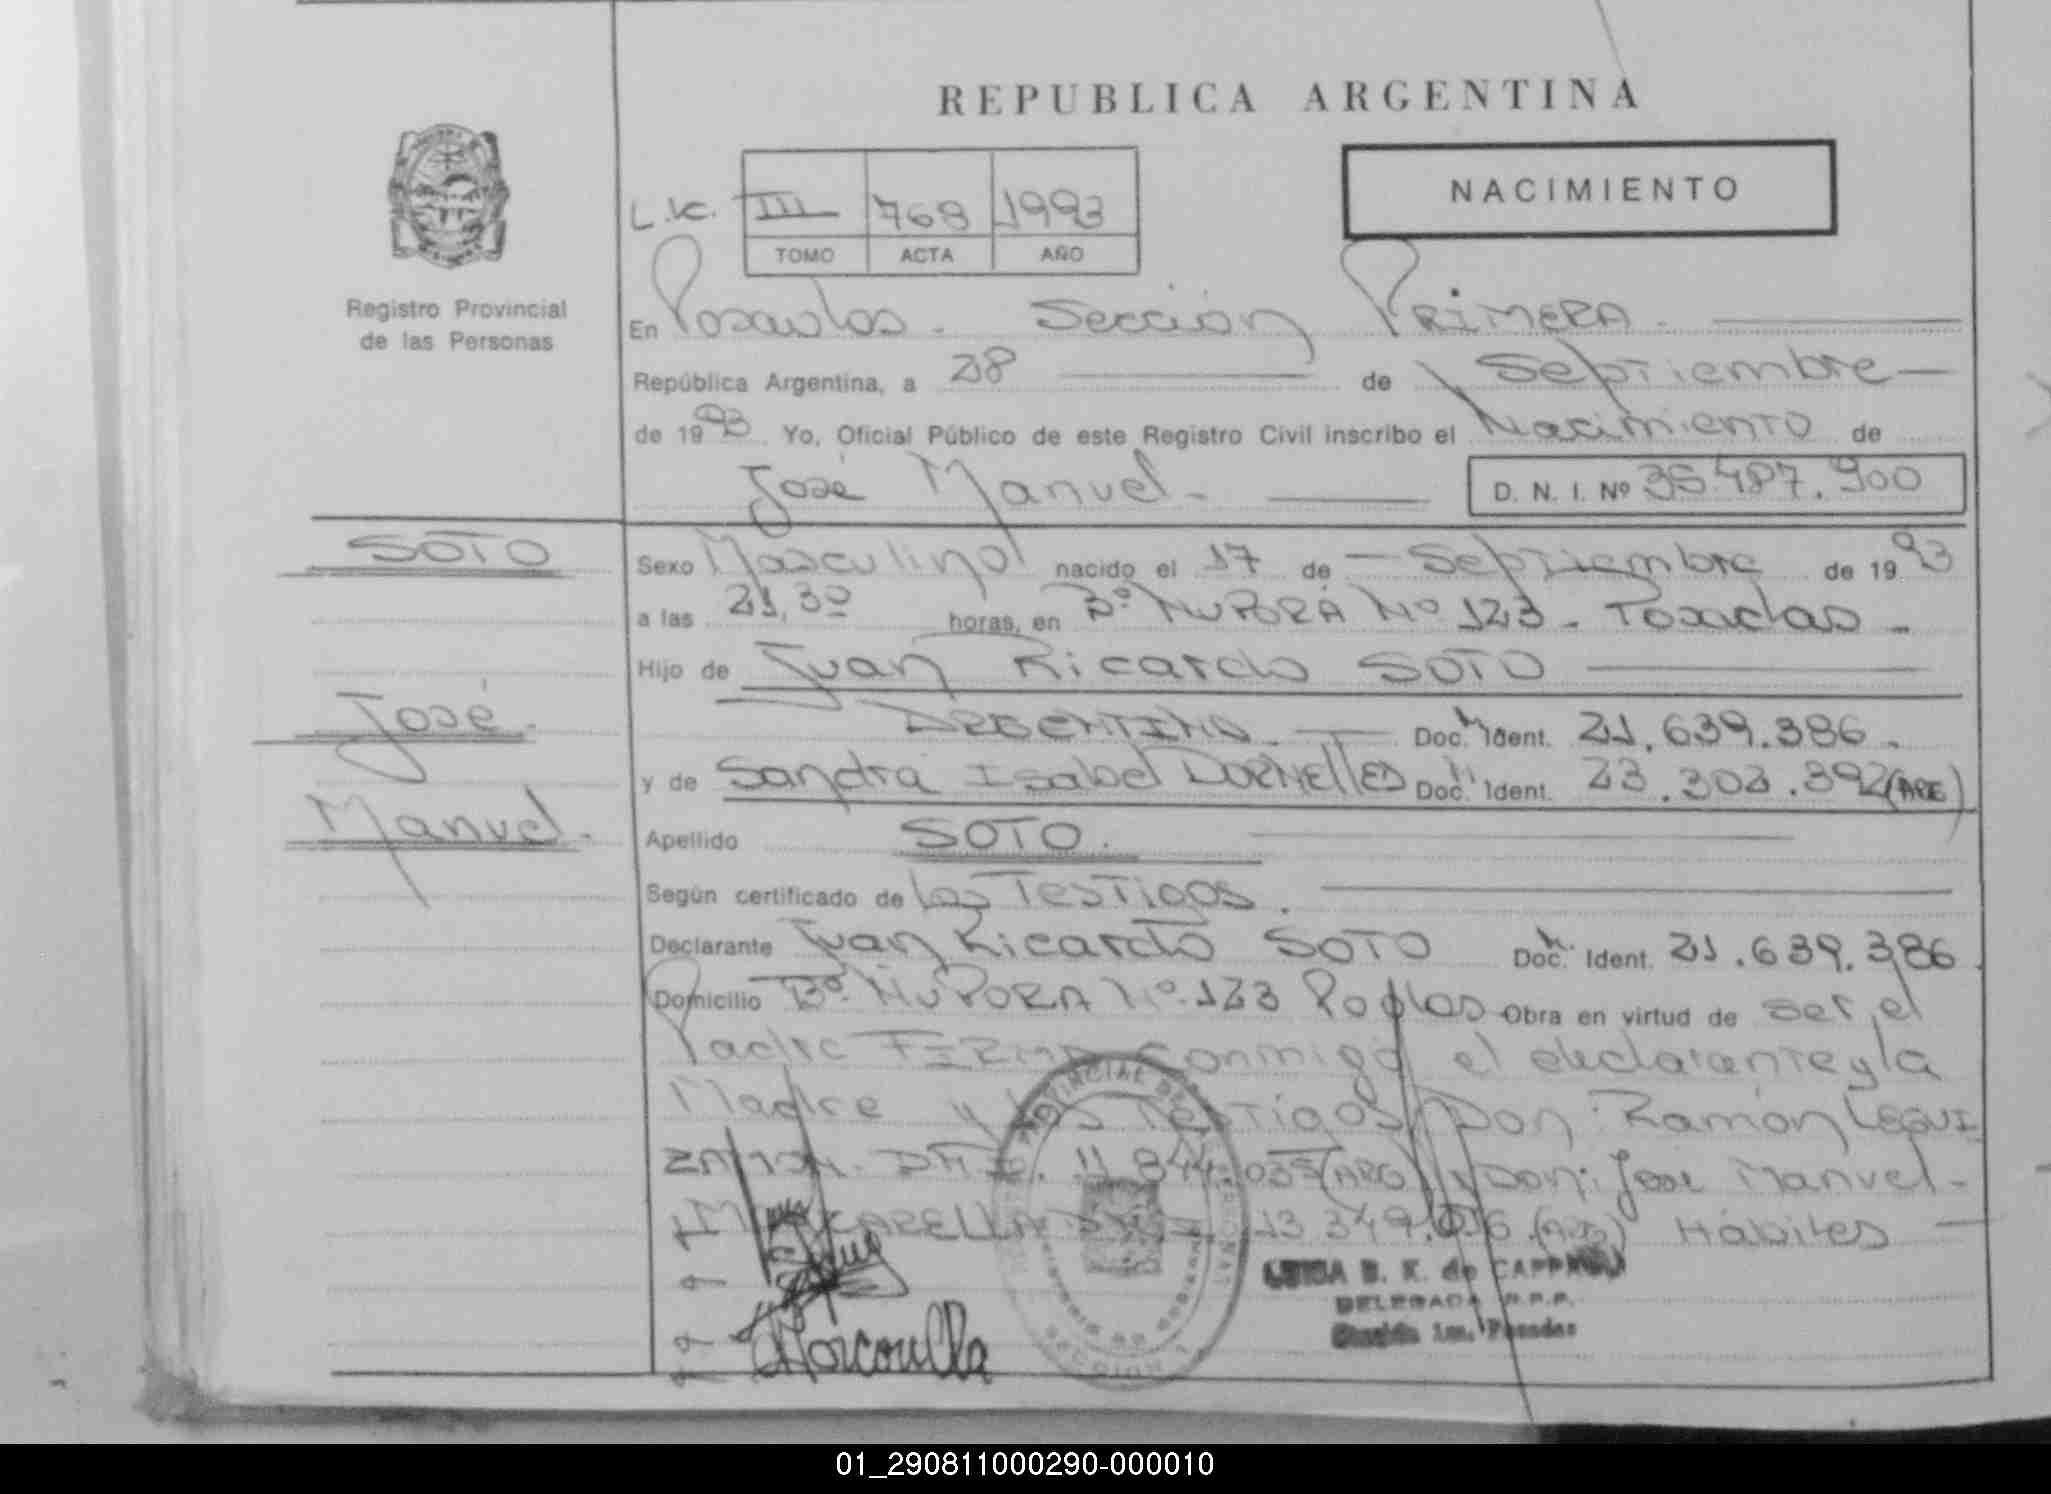 REPUBLICA ARGENTINA
NACIMIENTO
L.K. III 768 1993
TOMO ACTA AÑO
Registro Provincial
de las Personas
En Posadas. Sección PRIMERA.
República Argentina, a 28 de Septiembre
de 1993 Yo, Oficial Público de este Registro Civil inscribo el Nacimiento de
José Manuel D. N. I. Nº 35.487.900
SOTO
José
Manuel.
Sexo Masculino nacido el 17 de Septiembre de 1993
a las 21,30 horas, en Bº ÑU PORÁ Nº 123 - Posadas -
Hijo de Juan Ricardo SOTO
ARGENTINO Doc. Ident. 21.639.386.
y de Sandra Isabel DORNELLES Doc. Ident. 23.303.392 (ARG)
Apellido SOTO.
Según certificado de los Testigos.
Declarante Juan Ricardo SOTO Doc. Ident. 21.639.386
Domicilio Bº ÑU PORA Nº 123 Obra en virtud de ser el
Padre FIRMA conmigo el declarante y la
Madre y los Testigos Don: Ramón LEGUI
ZAMON. D.N.I. 11.844.035 (ARG) y Don: José Manuel-
13.349.016 (ARG) Hábiles
B. K. de
DELEGADA R.P.P.
Sección 1ra. Posadas
PROVINCIAL DE
SECCION 1
01_290811000290-000010